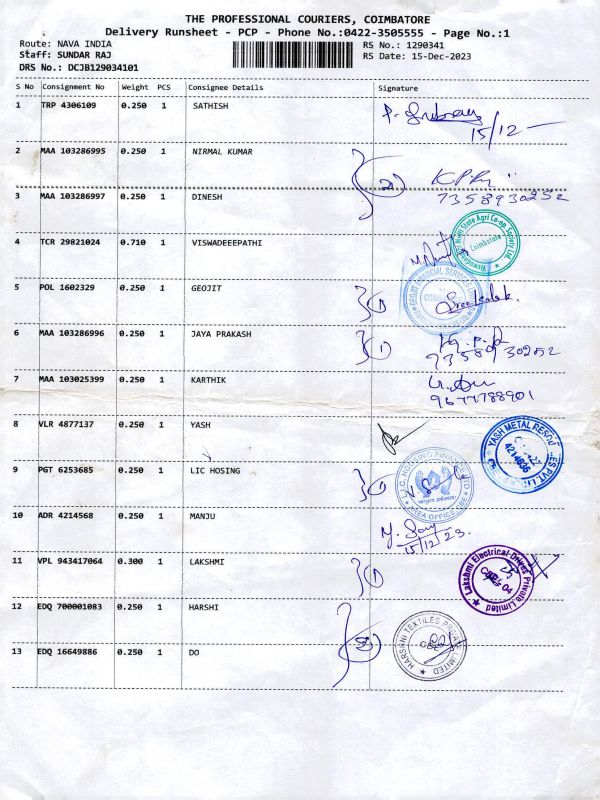 THE PROFESSIONAL COURIERS, COIMBATORE
Delivery Runsheet - PCP - Phone No.:0422-3505555 - Page No.:1
Route: NAVA INDIA RS No.: 1290341
Staff: SUNDAR RAJ RS Date: 15-Dec-2023
DRS No.: DCJB129034101
S No Consignment No Weight PCS Consignee Details Signature
1 TRP 4306109 0.250 1 SATHISH
15/12
2 MAA 103286995 0.250 1 NIRMAL KUMAR
2
3 MAA 103286997 0.250 1 DINESH 7358930252
4 TCR 29821024 0.710 1 VISWADEEEPATHI
Coimbatore
5 POL 1602329 0.250 1 GEOJIT
1
6 MAA 103286996 0.250 1 JAYA PRAKASH
1 7358930252
7 MAA 103025399 0.250 1 KARTHIK
9677788901
8 VLR 4877137 0.250 1 YASH
YASH METAL
4214636
9 PGT 6253685 0.250 1 LIC HOSING
1
L.I.C. HOUSING FINANCE LTD
AREA OFFICE, CBE
10 ADR 4214568 0.250 1 MANJU
15/12/23
11 VPL 943417064 0.300 1 LAKSHMI
1
Lakshmi Electrical Drives Private Limited
12 EDQ 700001083 0.250 1 HARSHI
HARSHNI TEXTILES PRIVATE LIMITED
13 EDQ 16649886 0.250 1 DO